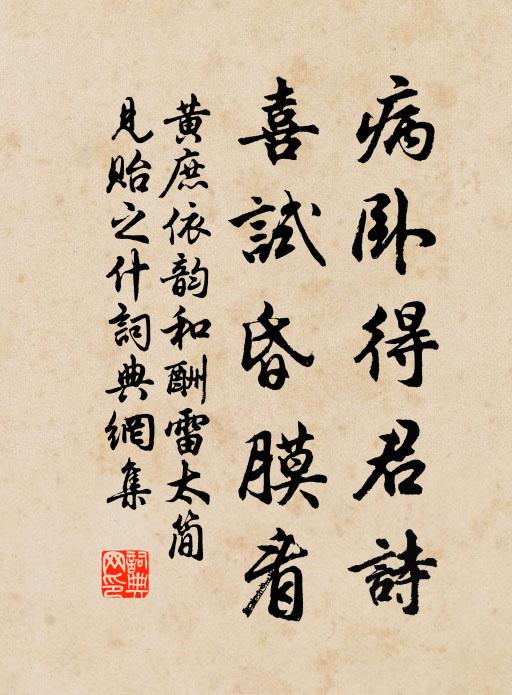 病卧得君詩
喜試昏膜看
黃庶依韵和酬雷太简
見贻之什詞典網集
詞典网印